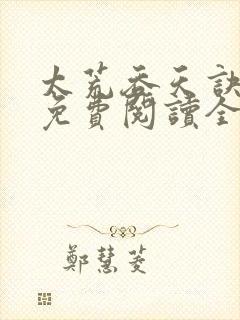 太荒吞天訣
免費閱讀全
鄭慧菱